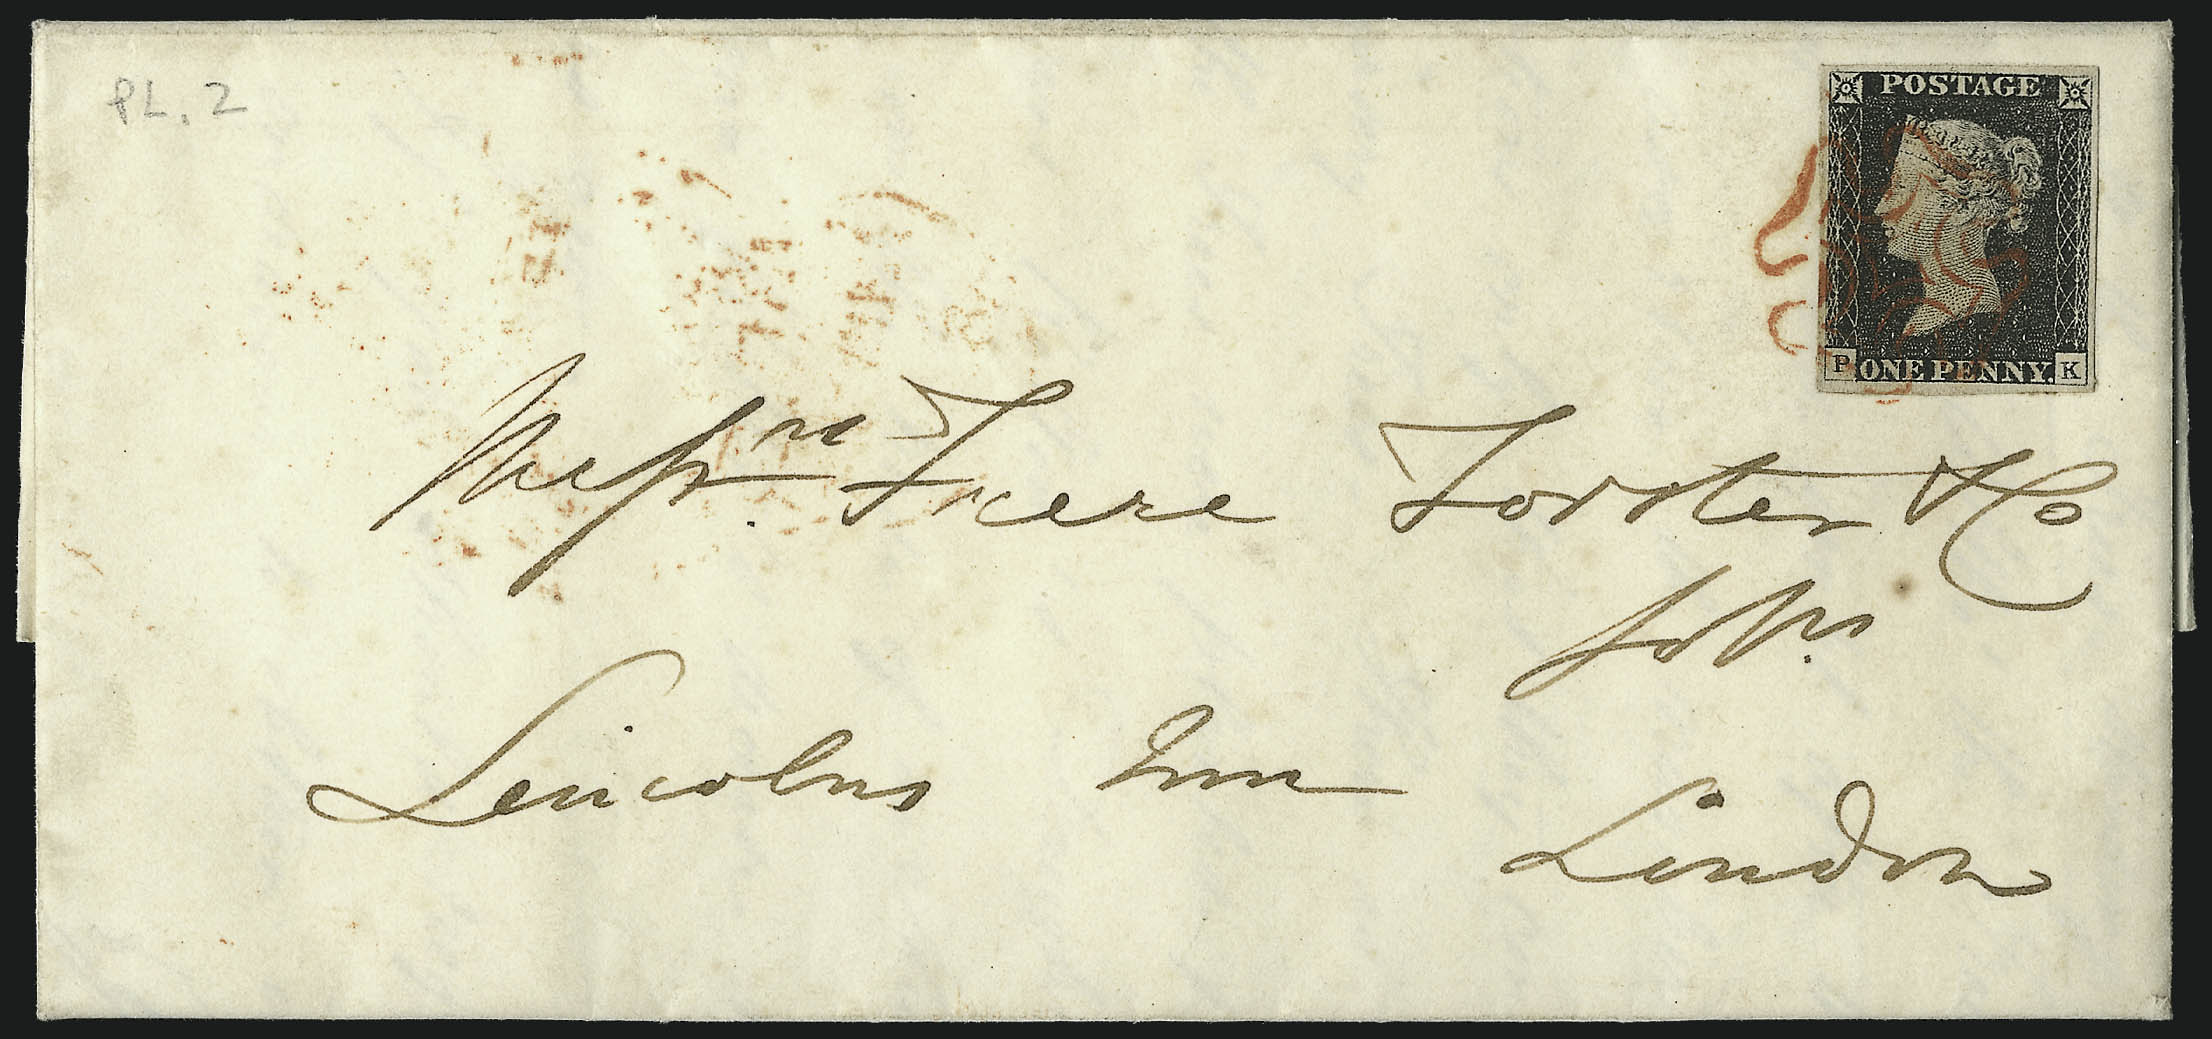 PL. 2
POSTAGE
P ONE PENNY. K
Messrs. Frere Forster & Co
Solrs.
Lincolns Inn
London